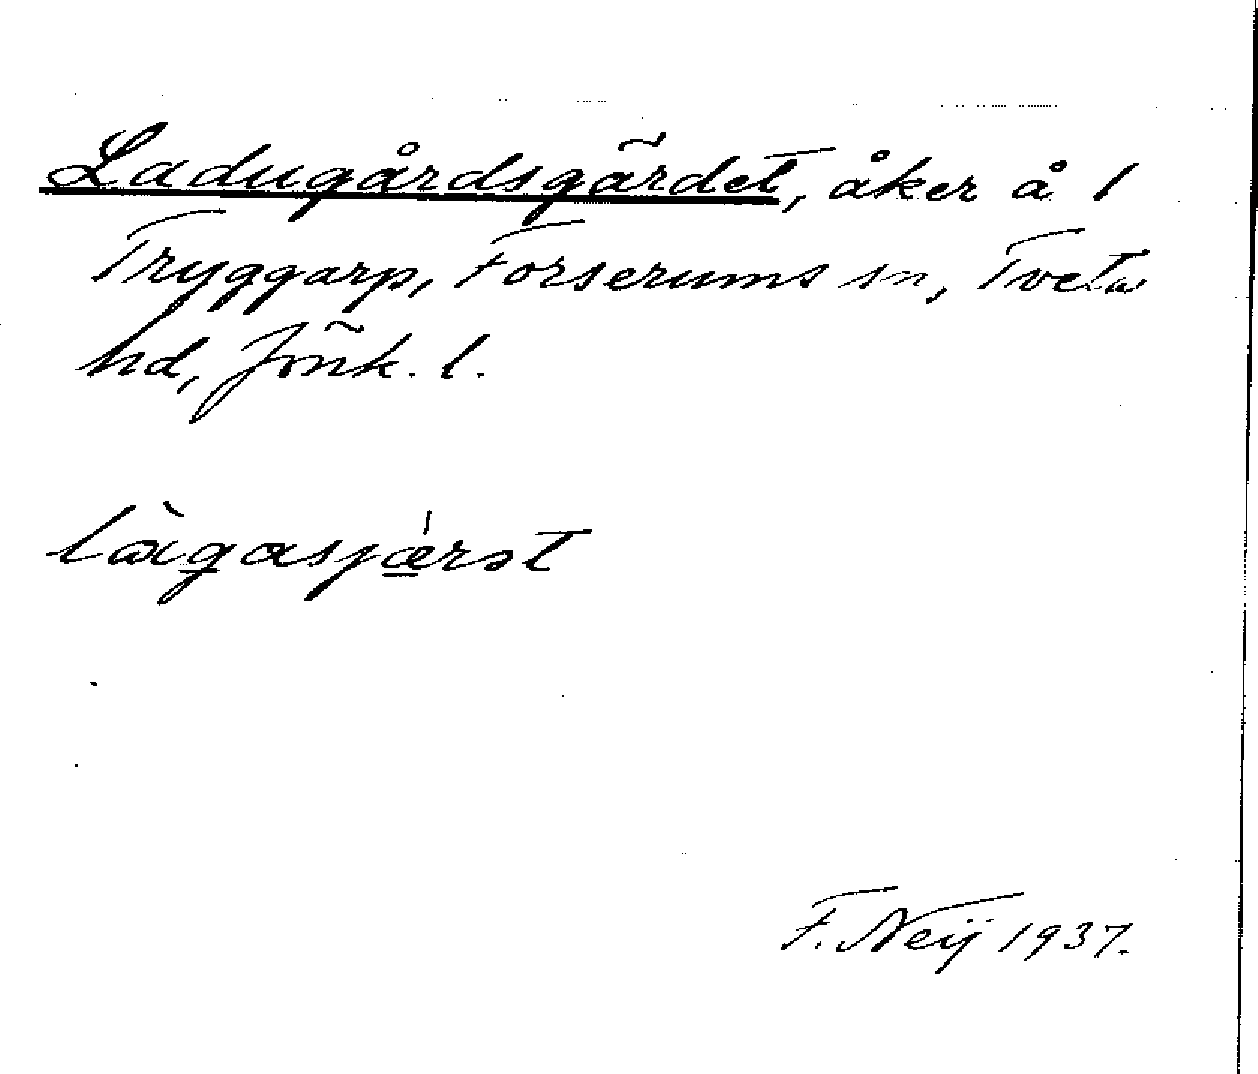 Ladugårdsgärdet, åker å 1
Tryggarp, Forserums sn, Tveta
hd, Jönk. l.
làgasjǽrət
F. Neij 1937.